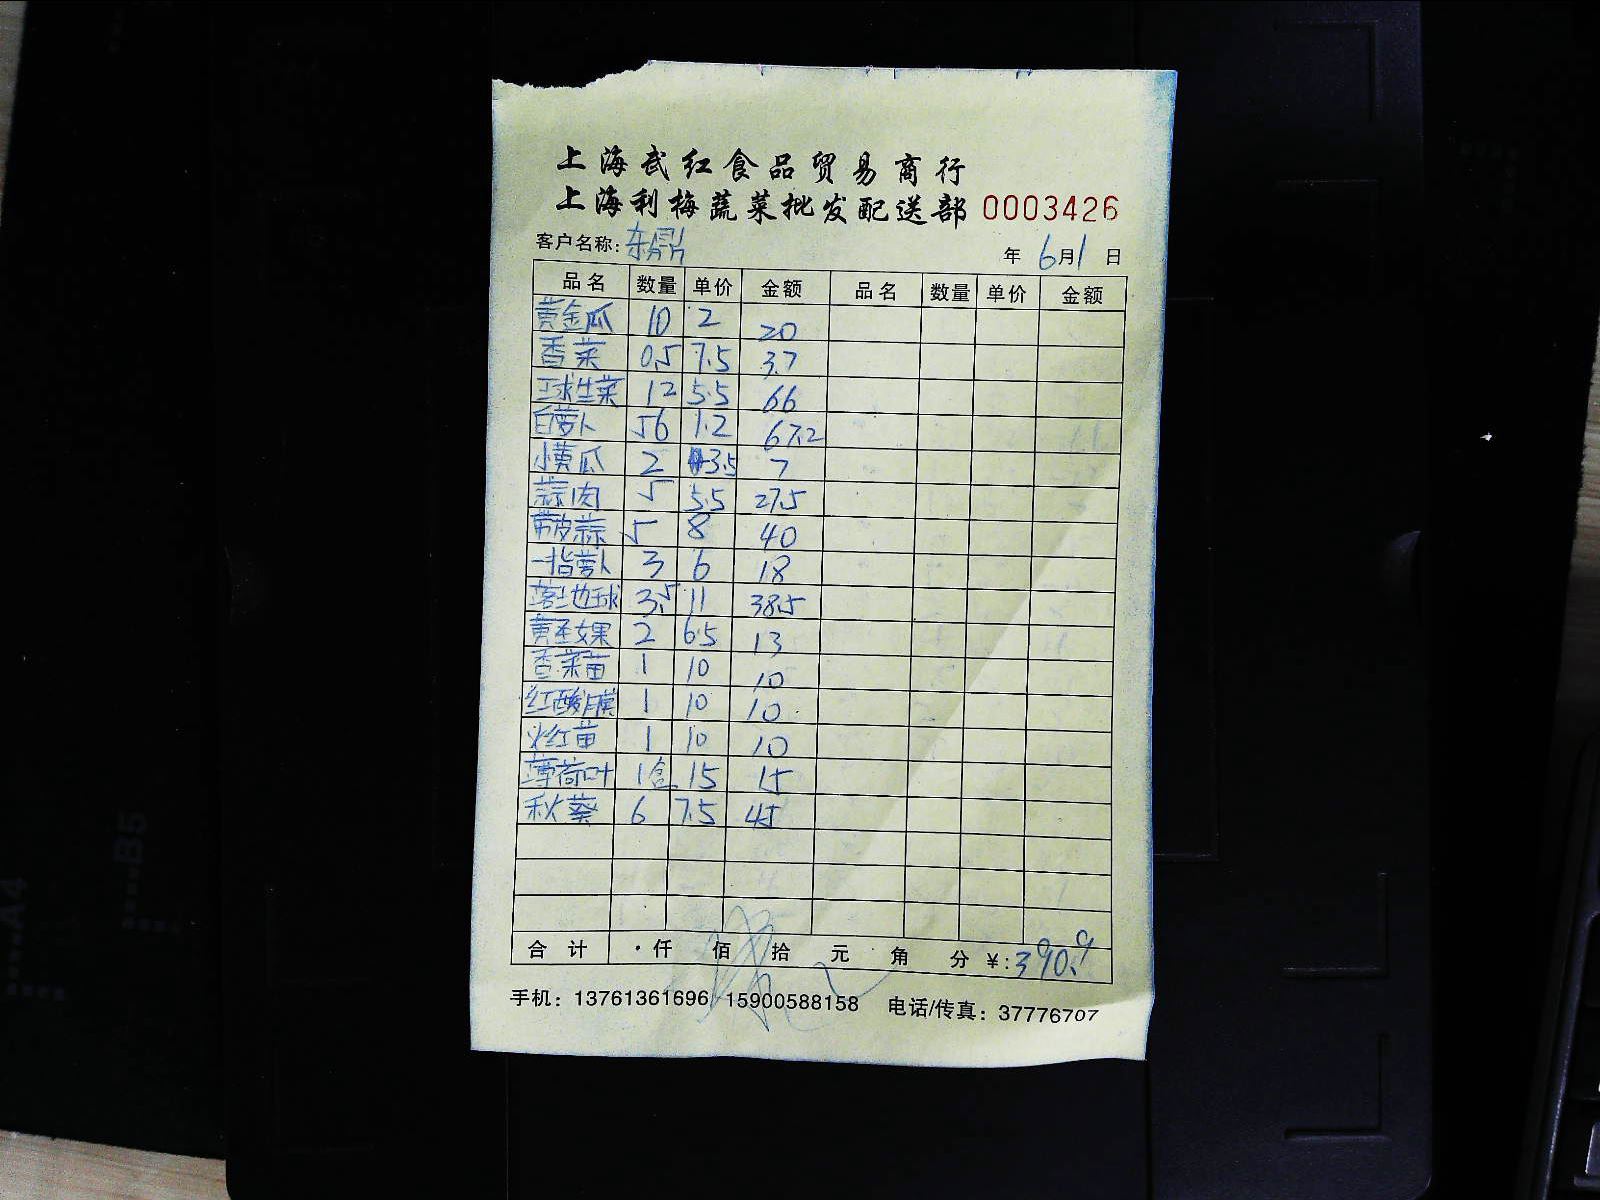 上海武红食品贸易商行
上海利梅蔬菜批发配送部 0003426
客户名称: 东鼎 年 6月1日
品名 数量 单价 金额 品名 数量 单价 金额
黄金瓜 10 2 20
香菜 0.5 7.5 3.7
球生菜 12 5.5 66
白萝卜 56 1.2 67.2
小黄瓜 2 3.5 7
蒜肉 5 5.5 27.5
带皮蒜 5 8 40
一指萝卜 3 6 18
落地球 3.5 11 38.5
黄圣女果 2 6.5 13
香菜苗 1 10 10
红酸膜 1 10 10
火红苗 1 10 10
薄荷叶 1盒 15 15
秋葵 6 7.5 45
合计 仟 佰 拾 元 角 分 ¥:390.9
手机: 13761361696 15900588158 电话/传真: 37776707
B5
A4